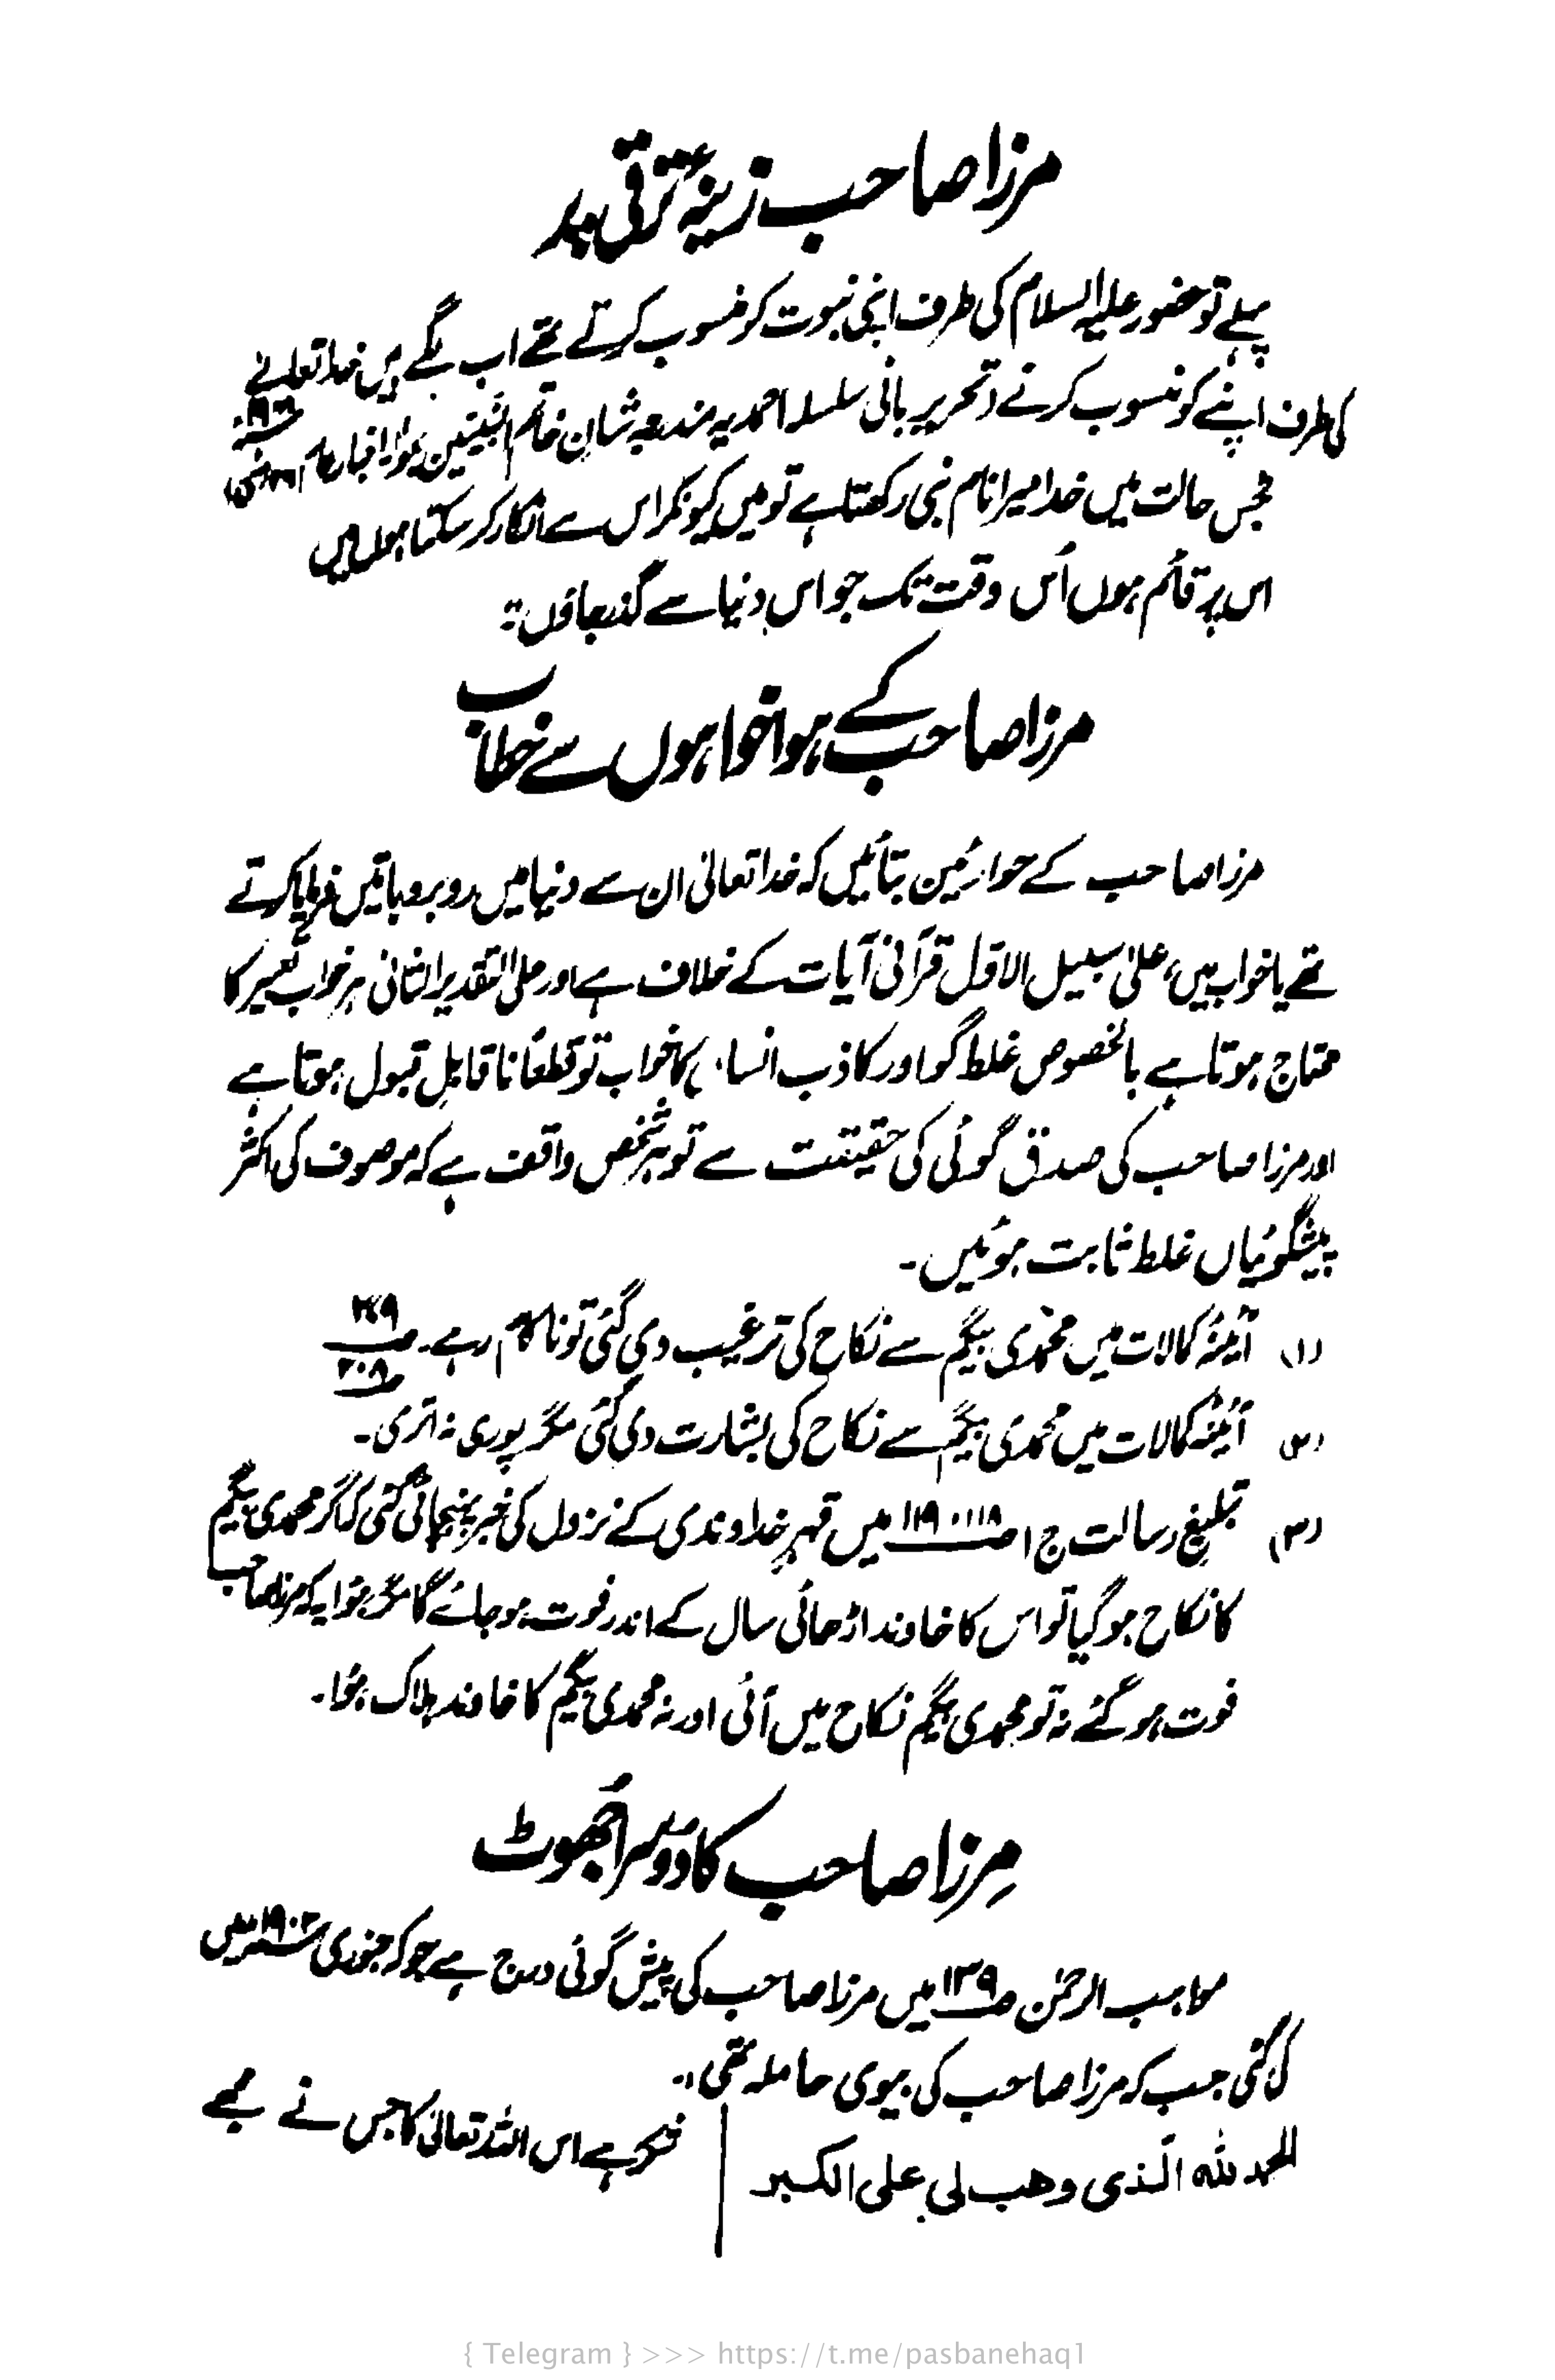 مرزا صاحب زینۂ ترقی پر
پہلے تو حضور علیہ السلام کی طرف اپنی نبوت کو منسوب کرتے تھے اب لگے ہیں خدا تعالےٰ
کی طرف اپنے کو منسوب کرنے دتحریر بانی سلسلہ احمدیہ مندرجہ شان خاتم النبیین بحوالہ اخبار عام
جس حالت میں خدا میرا نام نبی رکھتا ہے تو میں کیونکر اس سے انکار کر سکتا ہوں میں
اس پر قائم ہوں اُس وقت تک جو اس دنیا سے گذر جاؤں :
مرزا صاحب کے ہوا خواہوں سے خطاب
مرزا صاحب کے حوارئین بتائیں کہ خدا تعالیٰ ان سے دنیا میں روبرو باتیں فرمایا کرتے
تھے یا خواب میں، علیٰ سبیل الاوّل قرآنی آیات کے خلاف ہے اور علی التقدیر الثانی ہر خواب تعبیر کا
محتاج ہوتا ہے بالخصوص غلط گو اور کاذب انسان کا خواب تو قطعًا ناقابلِ قبول ہوتا ہے
اور مرزا صاحب کی صدق گوئی کی حقیقت سے تو ہر شخص واقف ہے کہ موصوف کی اکثر
پیشگوئیاں غلط ثابت ہوئیں۔
(۱) آئینۂ کمالات میں محمّدی بیگم سے نکاح کی ترغیب دی گئی تو ناکام رہے۔
(۲) آئینۂ کمالات میں محمدی بیگم سے نکاح کی بشارت دی گئی مگر پوری نہ اتری۔
(۳) تبلیغ رسالت ج ۱ ص ۱۱۸، ۱۱۹ میں قہرِ خداوندی کے نزول کی خبر پہنچائی گئی کہ اگر محمدی بیگم
کا نکاح ہو گیا تو اس کا خاوند اڑھائی سال کے اندر فوت ہو جائے گا مگر ہوا یہ کہ مرزا صاحب
فوت ہو گئے نہ تو محمدی بیگم نکاح میں آئی اور نہ محمدی بیگم کا خاوند ہلاک ہوا۔
مرزا صاحب کا دوسرا جھوٹ
مواہب الرحمٰن ص ۱۳۹ میں مرزا صاحب کی پیش گوئی درج ہے جو کہ جنوری ۱۹۰۳ء میں
کی گئی جب کہ مرزا صاحب کی بیوی حاملہ تھی۔
الحمد للہ الّذی وھب لی علی الکبر
شکر ہے اس اللہ تعالیٰ کا جس نے مجھے
{ Telegram } >>> https://t.me/pasbanehaq1